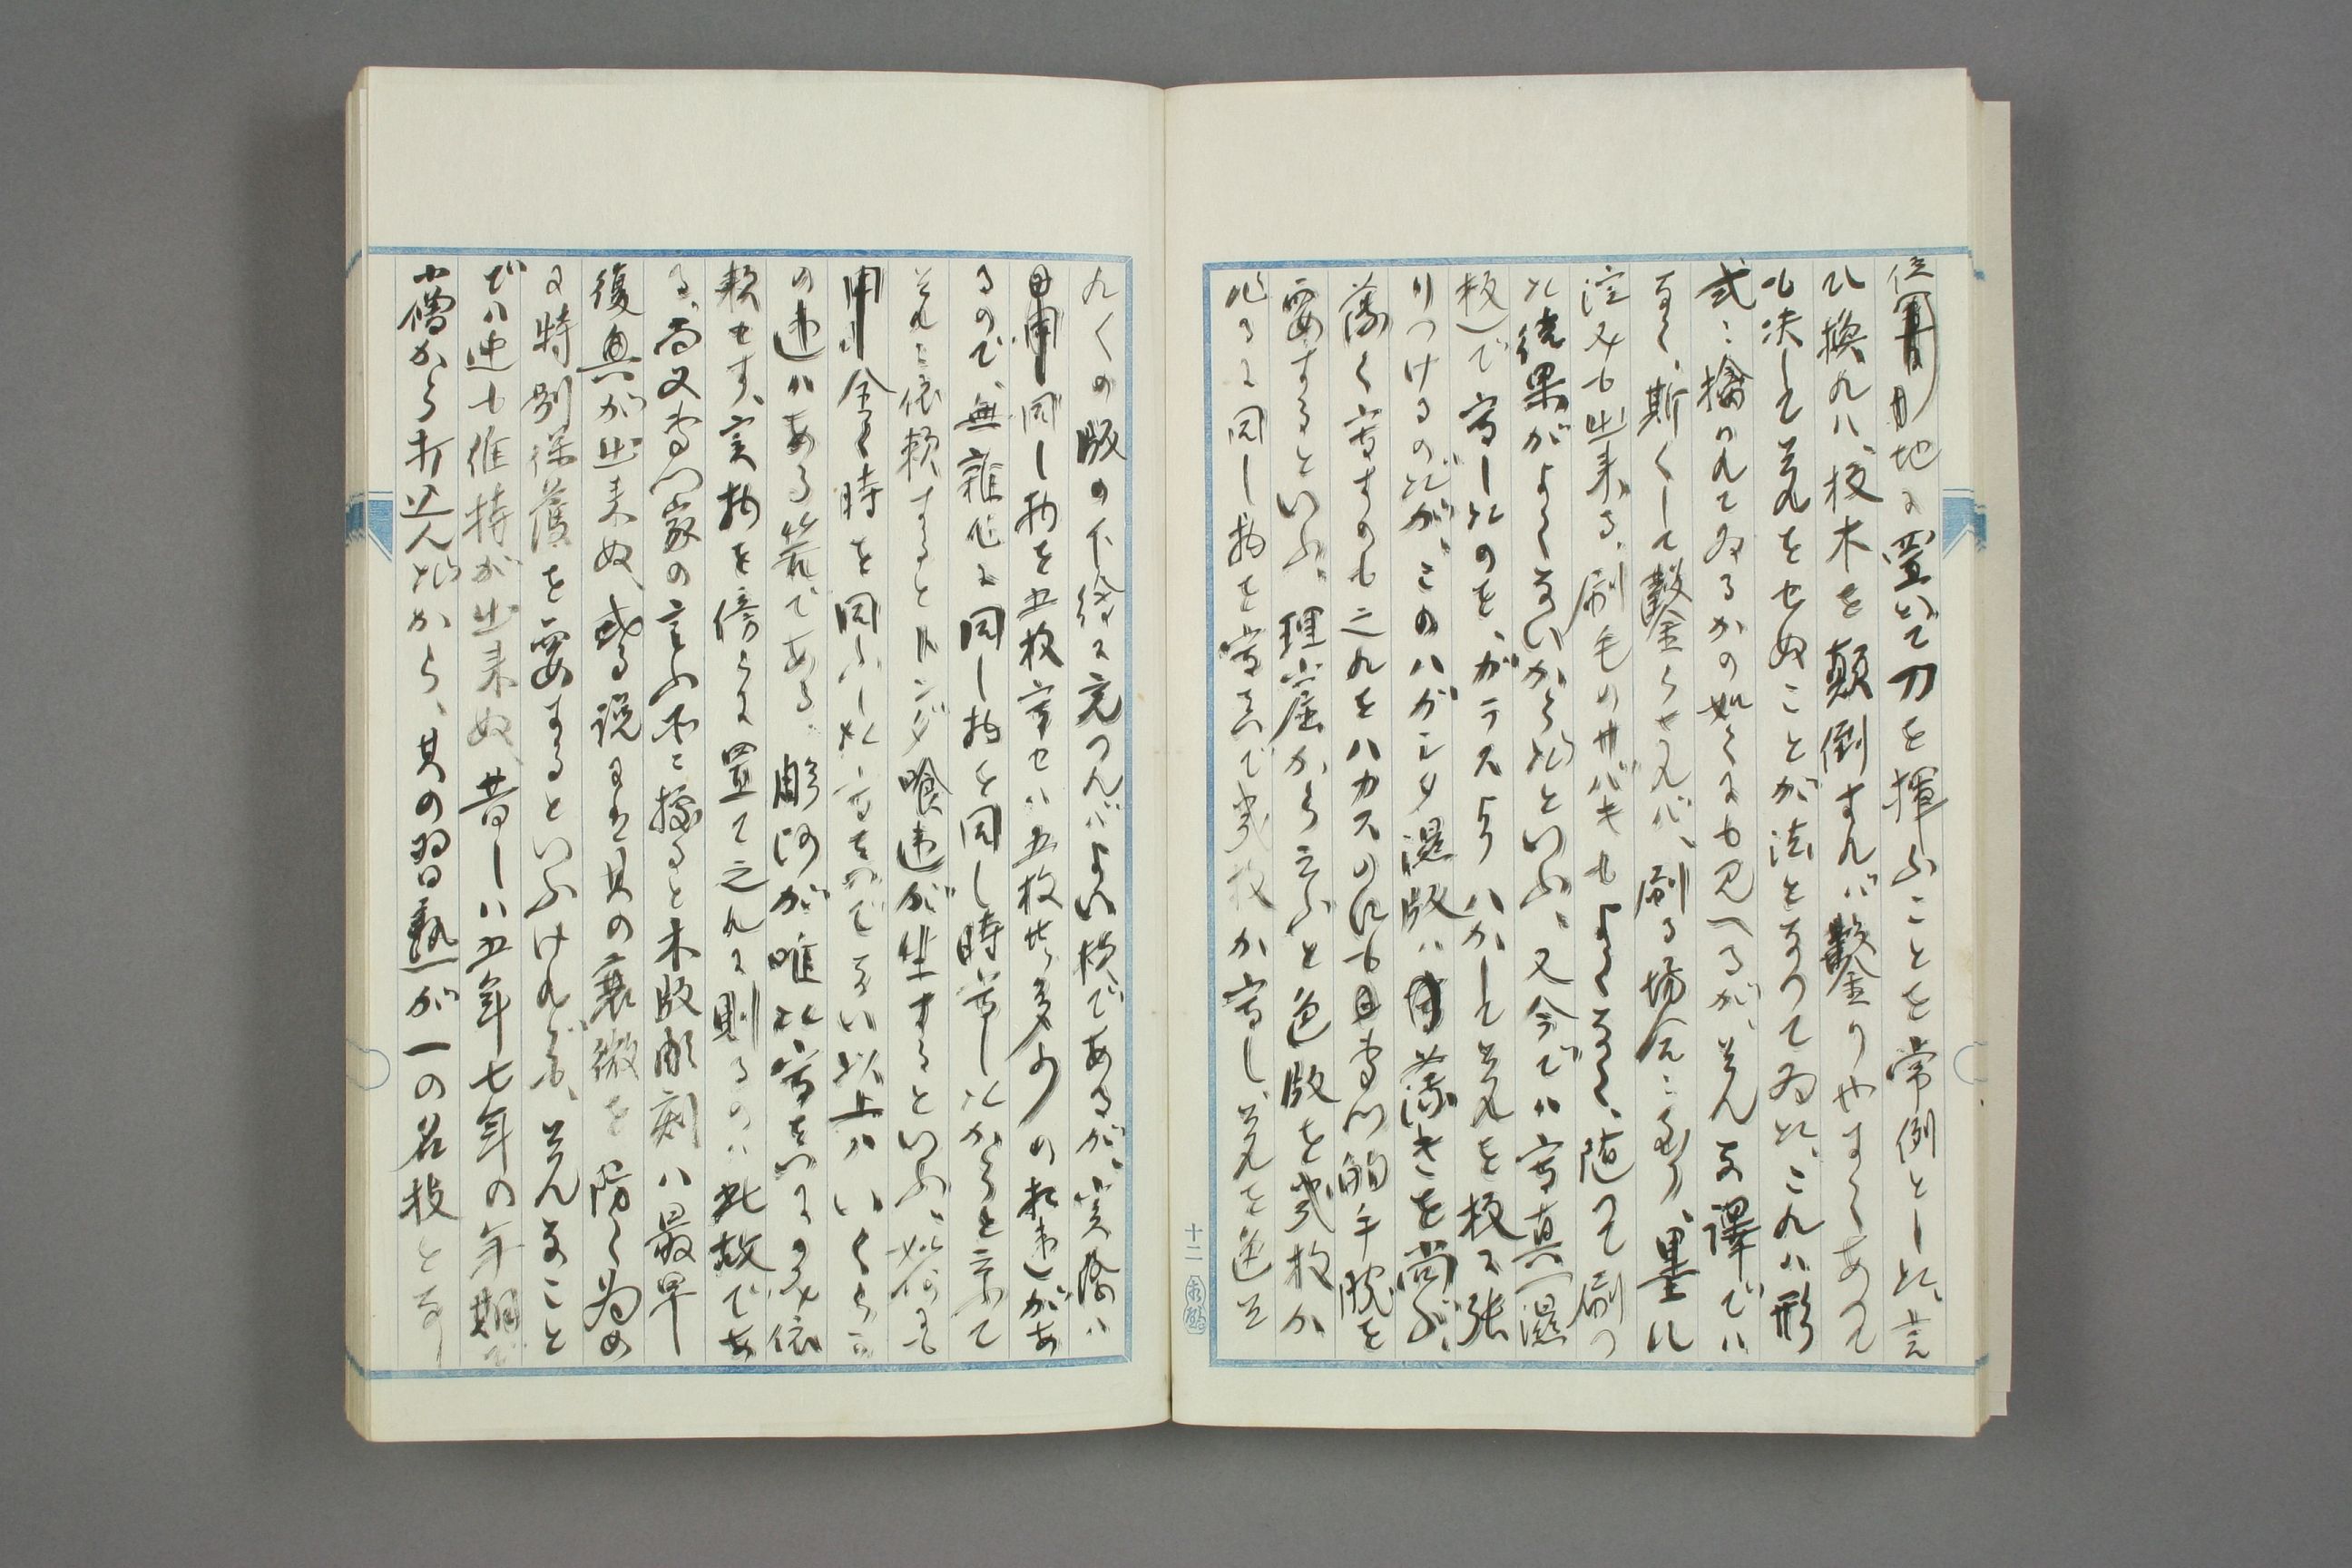 位地に置いて刀を揮ふことを常例とした、言
ひ換れハ、板木を顛倒すれバ鑿りやすくあつて
も决して其れをせぬことが法となつてゐた、これハ形
式に擒ハれてゐるかの如くにも見へるが、そんな譯でハ
なく、斯くして鑿らせれバ、刷る場合に至り、墨ハ
渲みも出来る、刷毛のサバキもよくなく、随つて刷つ
た結果がよくないからだといふ、又今でハ寫真(濕
板)で寫したのを、ガラスよりハがして其れを板に張
りつけるのだが、このハがした濕版ハ薄きを尚ぶ、
薄く寫すのも之れをハガスのにも専門的手腕を
要するといふ、理屈から言ふと色版を幾枚か
作るに同し物を寫真で幾枚か寫し、其れを色並
十二
れくの版の下繪に充つれバよい様であるが、実際ハ
同し物を五枚寫せハ五枚共多少の相違があ
るので、無雑作に同し物を同し時寫したからと言ふて
それに依頼するとトンダ喰違が生するといふ、如何にも
全く時を同ふした寫真でない以上ハいくらか
の違ハある筈である、彫師が唯た寫真のみに依
頼せす、実物を傍らに置て之れに則るのハ此故であ
る、尚又専門家の言ふ所に據ると木版彫刻ハ最早
復興が出来ぬ、或る説にハ其の衰微を防く為め
に特別保護を要するといふけれども、そんなこと
でハ迚も維持が出来ぬ、昔しハ五年七年の年期で
小僧から打込んだから、其の習熟が一の名技となり